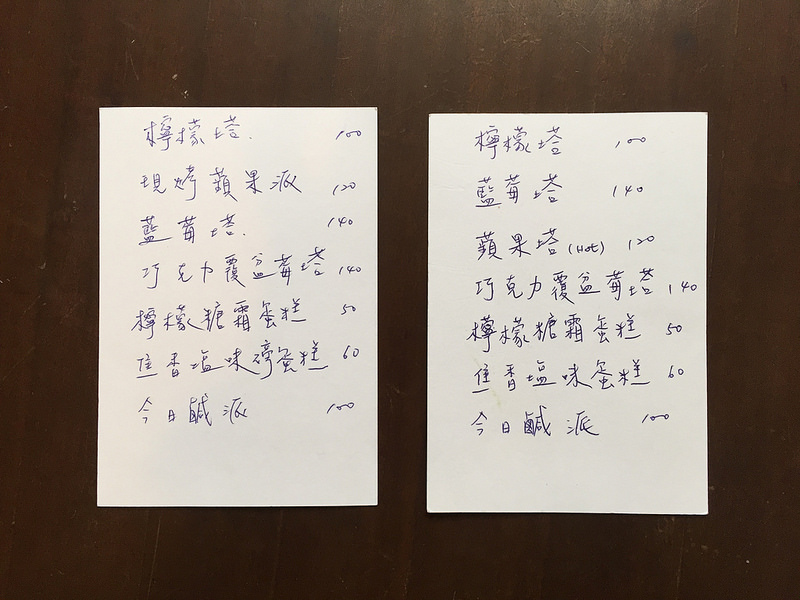 檸檬塔. 100
現烤蘋果派 120
藍莓塔. 140
巧克力覆盆莓塔 140
檸檬糖霜蛋糕 50
焦香塩味磅蛋糕 60
今日鹹派 100
檸檬塔 100
藍莓塔 140
蘋果塔(Hot) 120
巧克力覆盆莓塔 140
檸檬糖霜蛋糕 50
焦香塩味蛋糕 60
今日鹹派 100